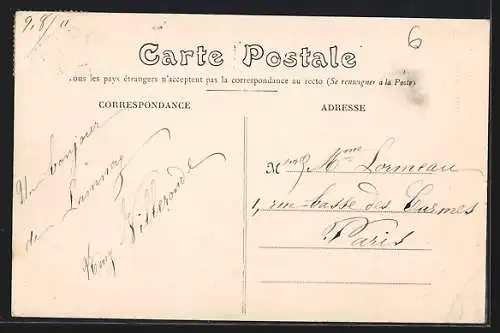 9/8/11
6
Carte Postale
Tous les pays étrangers n'acceptent pas la correspondance au recto (Se renseigner à la Poste)
CORRESPONDANCE
ADRESSE
Un bonjour
de Lannoy
Villeronde
M Mme Lormeau
1, rue basse des Carmes
Paris